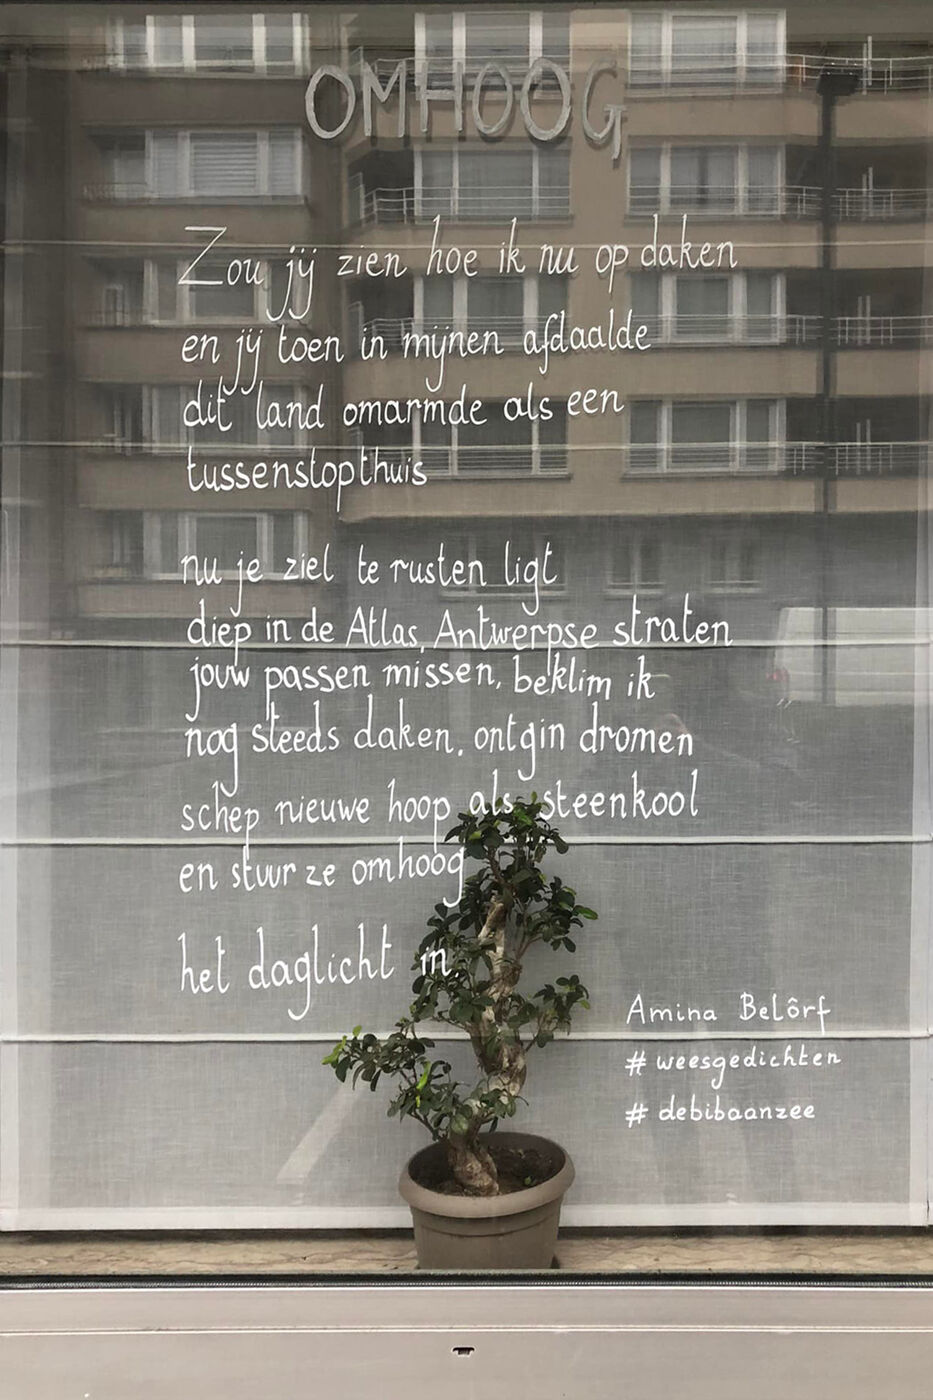 OMHOOG
Zou jij zien hoe ik nu op daken
en jij toen in mijnen afdaalde
dit land omarmde als een
tussenstopthuis
nu je ziel te rusten ligt
diep in de Atlas, Antwerpse straten
jouw passen missen, beklim ik
nog steeds daken, ontgin dromen
schep nieuwe hoop als steenkool
en stuur ze omhoog
het daglicht in.
Amina Belôrf
# weesgedichten
# debibaanzee